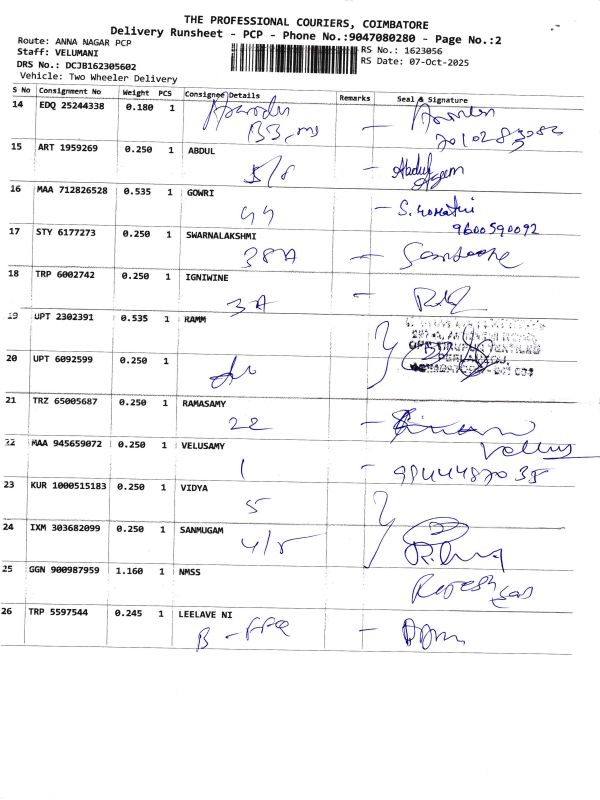 THE PROFESSIONAL COURIERS, COIMBATORE
Delivery Runsheet - PCP - Phone No.:9047080280 - Page No.:2
Route: ANNA NAGAR PCP
Staff: VELUMANI
RS No.: 1623056
DRS No.: DCJB162305602
RS Date: 07-Oct-2025
Vehicle: Two Wheeler Delivery
S No Consignment No Weight PCS Consignee Details Remarks Seal & Signature
14 EDQ 25244338 0.180 1
15 ART 1959269 0.250 1 ABDUL
5/8 - Abdul
16 MAA 712826528 0.535 1 GOWRI
- S. Gomathi
9600590092
17 STY 6177273 0.250 1 SWARNALAKSHMI
38A -
18 TRP 6002742 0.250 1 IGNIWINE
3A -
19 UPT 2302391 0.535 1 RAMM
20 UPT 6092599 0.250 1
21 TRZ 65005687 0.250 1 RAMASAMY
22 -
22 MAA 945659072 0.250 1 VELUSAMY
1 -
23 KUR 1000515183 0.250 1 VIDYA
5
24 IXM 303682099 0.250 1 SANMUGAM
4/5
25 GGN 900987959 1.160 1 NMSS
26 TRP 5597544 0.245 1 LEELAVE NI
B -